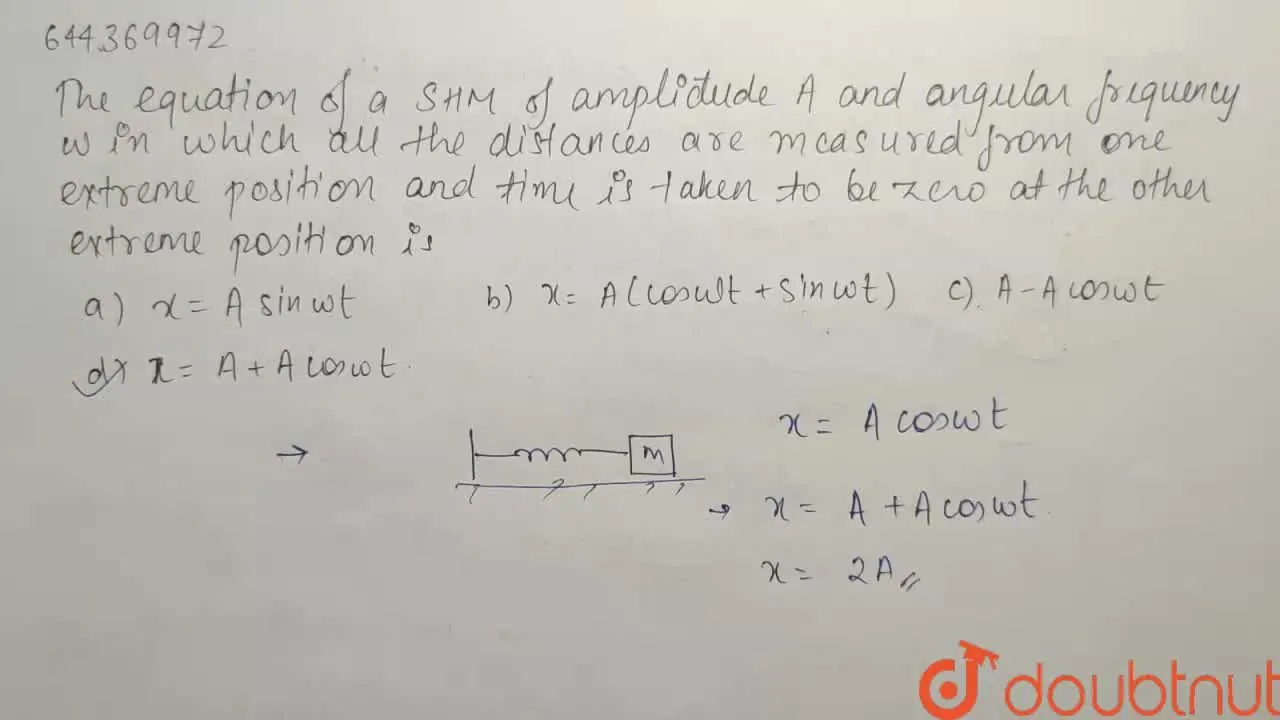 644369972
The equation of a SHM of amplidude A and angular frequency
w in which all the distances are measured from one
extreme position and time is taken to be zero at the other
extreme position is
a) x = A sin wt b) x = A (cos wt + sin wt) c). A - A cos wt
d) x = A + A cos wt.
x = A cos wt
→ m
→ x = A + A cos wt.
x = 2A //
doubtnut